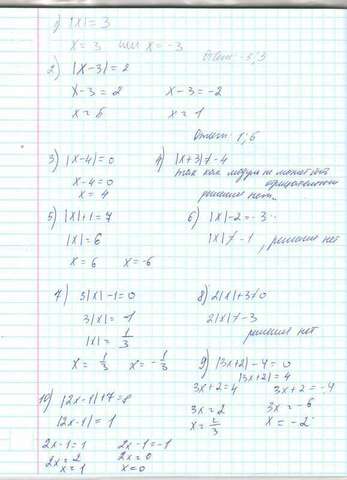 1) |x|=3
x=3 или x=-3
Ответ: -3; 3
2) |x-3|=2
x-3=2 x-3=-2
x=5 x=1
Ответ: 1; 5
3) |x-4|=0
x-4=0
x=4
4) |x+3|≠-4
так как модуль не может быть
отрицательным
решения нет.
5) |x|+1=7
|x|=6
x=6 x=-6
6) |x|-2=-3
|x|≠-1, решения нет
7) 3|x|-1=0
3|x|=-1
|x|=1/3
x=1/3 x=-1/3
8) 2|x|+3≠0
2|x|≠-3
решения нет
9) |3x+2|-4=0
|3x+2|=4
3x+2=4 3x+2=-4
3x=2 3x=-6
x=2/3 x=-2
10) |2x-1|+7=8
|2x-1|=1
2x-1=1 2x-1=-1
2x=2 2x=0
x=1 x=0